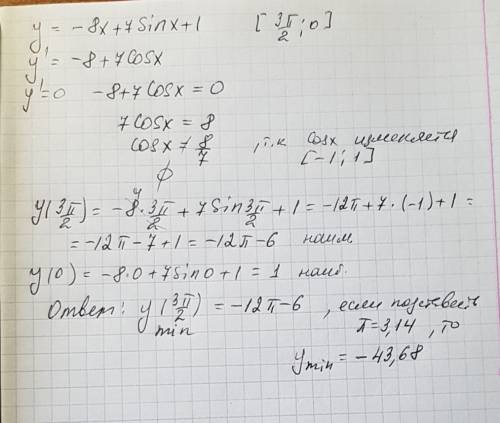 y = -8x+7sinx+1 [3π/2; 0]
y' = -8+7cosx
y'=0 -8+7cosx = 0
7cosx = 8
cosx ≠ 8/7 , т.к cosx изменяется
[-1; 1]
∅
y(3π/2) = -8·3π/2 + 7sin3π/2 + 1 = -12π+7·(-1)+1 =
= -12π-7+1 = -12π-6 наим
y(0) = -8·0+7sin0+1 = 1 наиб.
Ответ: y(3π/2) = -12π-6 , если подставить
min π=3,14 , то
y min = -43,68